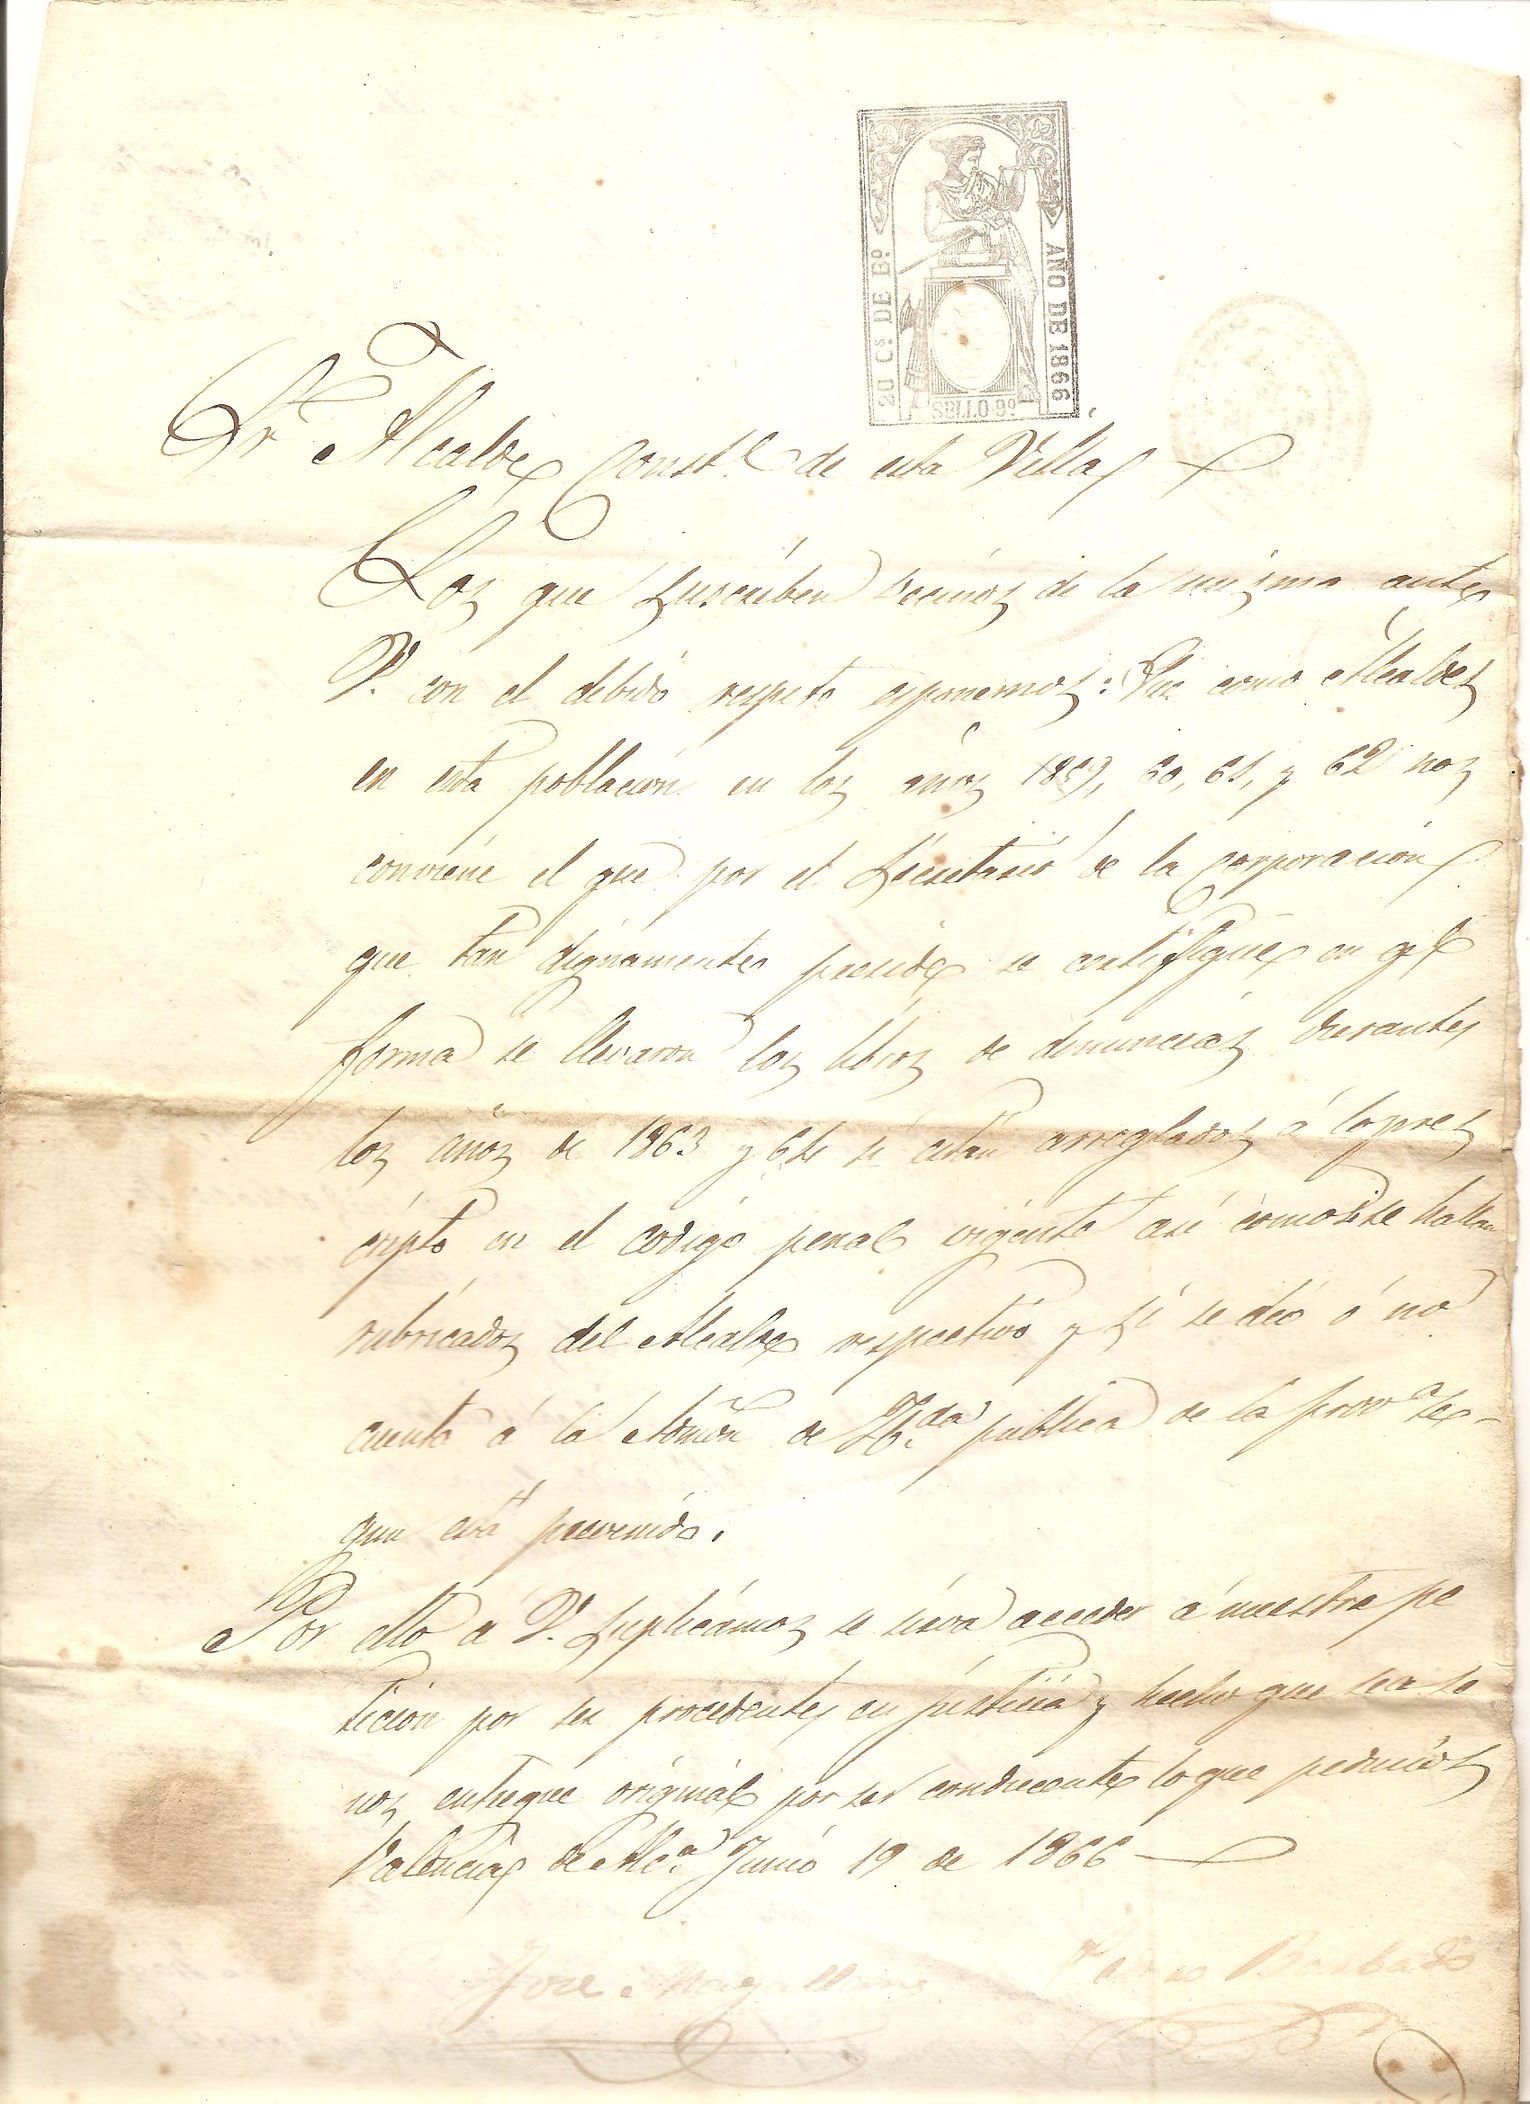 20 Cs. DE Eº
AÑO DE 1866
SELLO 9º
Sr Alcalde Const.l de esta Villa
Los que suscriben vecinos de la misma ante
V. con el debido respeto esponemos: Que como Alcaldes
en esta poblacion en los años 1859, 60, 61, y 62 nos
conviene el que por el Secretario de la corporacion
que tan dignamente preside se certifique en qe
forma se llevaron los libros de denuncias durante
los años de 1863 y 64 si están arreglados á lo pres
cripto en el codigo penal vigente asi como si se hallan
rubricados del Alcalde respectivo y si se dió ó no
cuenta á la Admon de H.da publica de la prova se-
gun está prevenido.
Por ello á V. suplicamos se sirva acceder á nuestra pe
ticion por ser procedente en justicia y hecho que sea se
nos entregue original por ser conducente lo que pedimos
Valencia de Alc.a Junio 19 de 1866
Jose Magallanes
Pedro Barbado